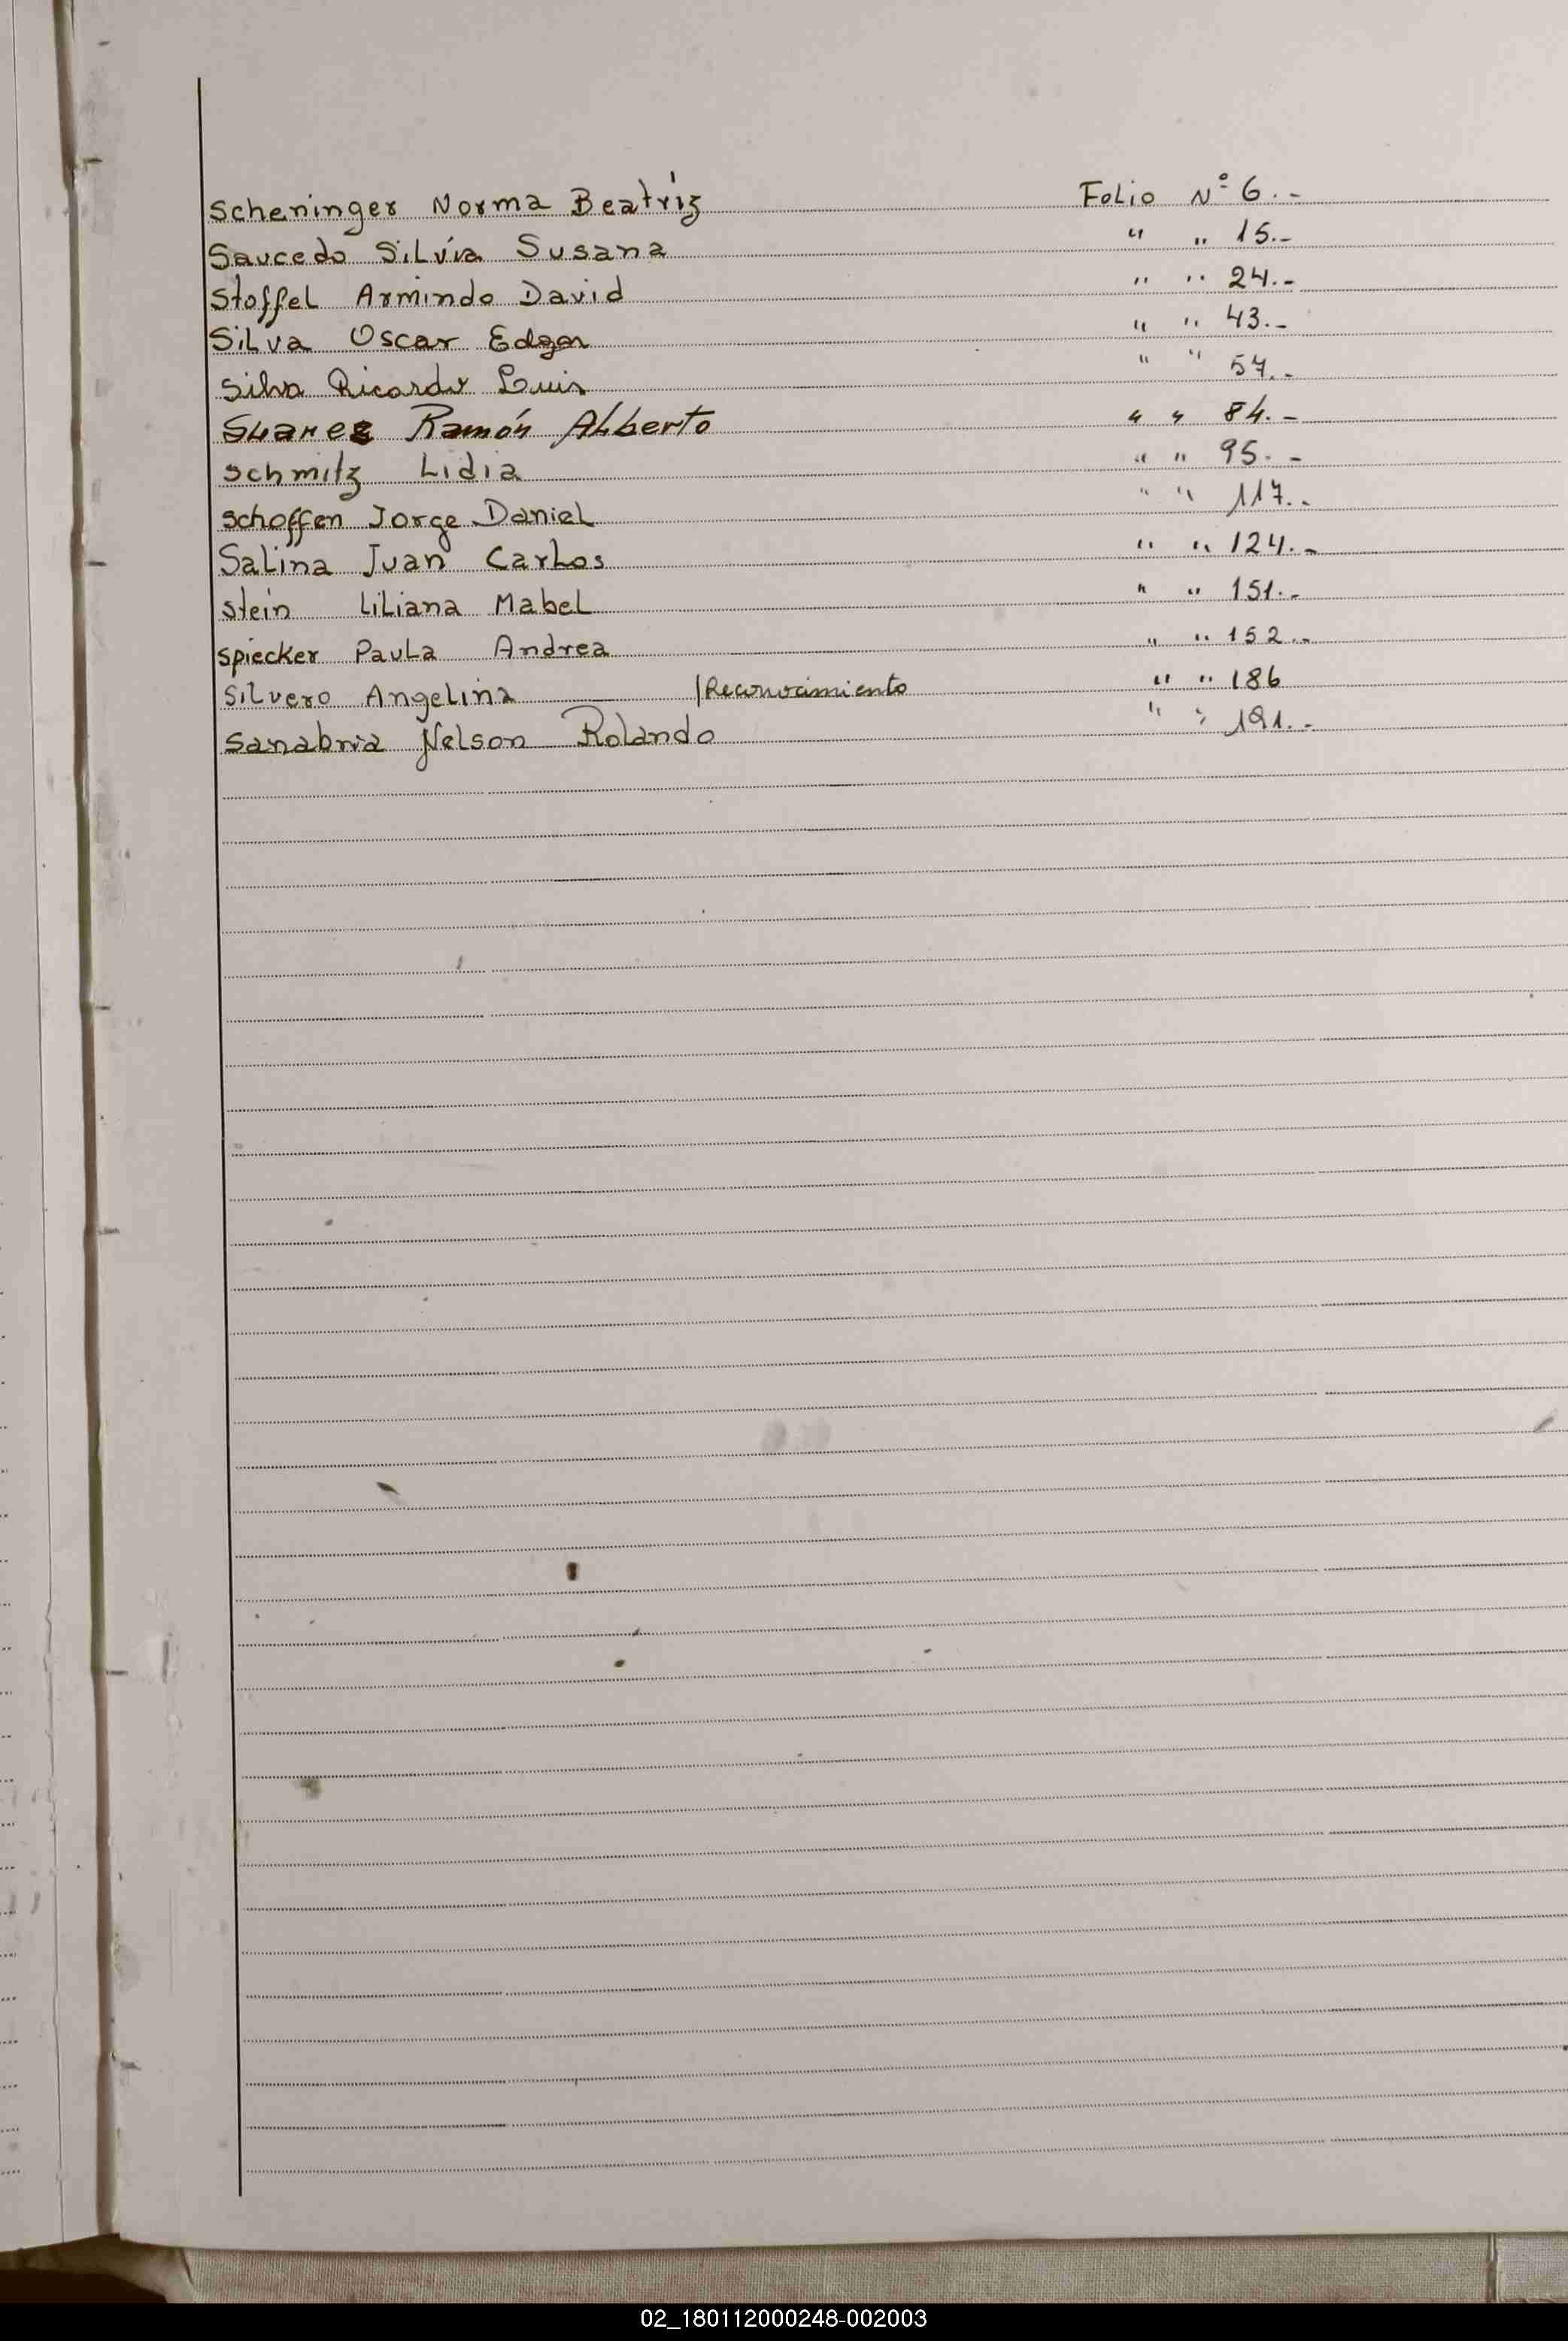 Scheninger Norma Beatriz Folio Nº 6.-
Saucedo Silvia Susana " " 15.-
Stoffel Armindo David " " 24.-
Silva Oscar Edgar " " 43.-
Silva Ricardo Luis " " 57.-
Suarez Ramón Alberto " " 84.-
Schmitz Lidia " " 95.-
Schoffen Jorge Daniel " " 117.-
Salina Juan Carlos " " 124.-
Stein Liliana Mabel " " 151.-
Spiecker Paula Andrea " " 152.-
Silvero Angelina /Reconocimiento " " 186
Sanabria Nelson Rolando " " 191.-
02_180112000248-002003